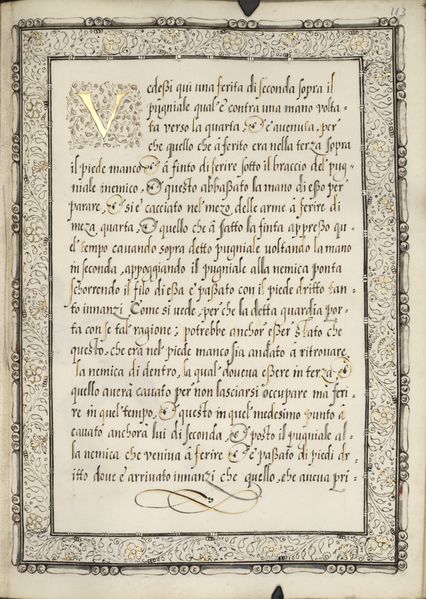 113
Vedeßi qui una ferita di seconda sopra il
pugniale qual' è contra una mano volta-
ta verso la quarta, Et è auenuta, per
che quello che à ferito era nella terza sopra
il piede manco Et à finto di ferire sotto il braccio del pug-
niale inemico, Et questo abbaßato la mano di eßo per
parare, Et si è cacciato nel mezo delle arme à ferire di
meza quarta, Et quello che à fatto la finta appreßo qu-
el tempo cauando sopra detto pugniale voltando la mano
in seconda, appoggiando il pugniale alla nemica ponta
schorrendo il filo di eßa è paßato con il piede dritto tan-
to innanzi. Come si vede, per che la detta guardia por-
ta con se tal ragione; potrebbe anchor' eßer' stato che
questo, che era nel piede manco sia andato à ritrouare
la nemica di dentro, la qual' doueua eßere in terza, Et
quello auerà cauato per non lasciarsi occupare ma feri-
re in quel tempo, Et questo in quel medesimo punto à
cauato anchora lui di seconda, Et posto il pugniale al-
la nemica che veniua à ferire Et è paßato di piedi dr-
itto doue è arriuato innanzi che quello, che aueua pri-